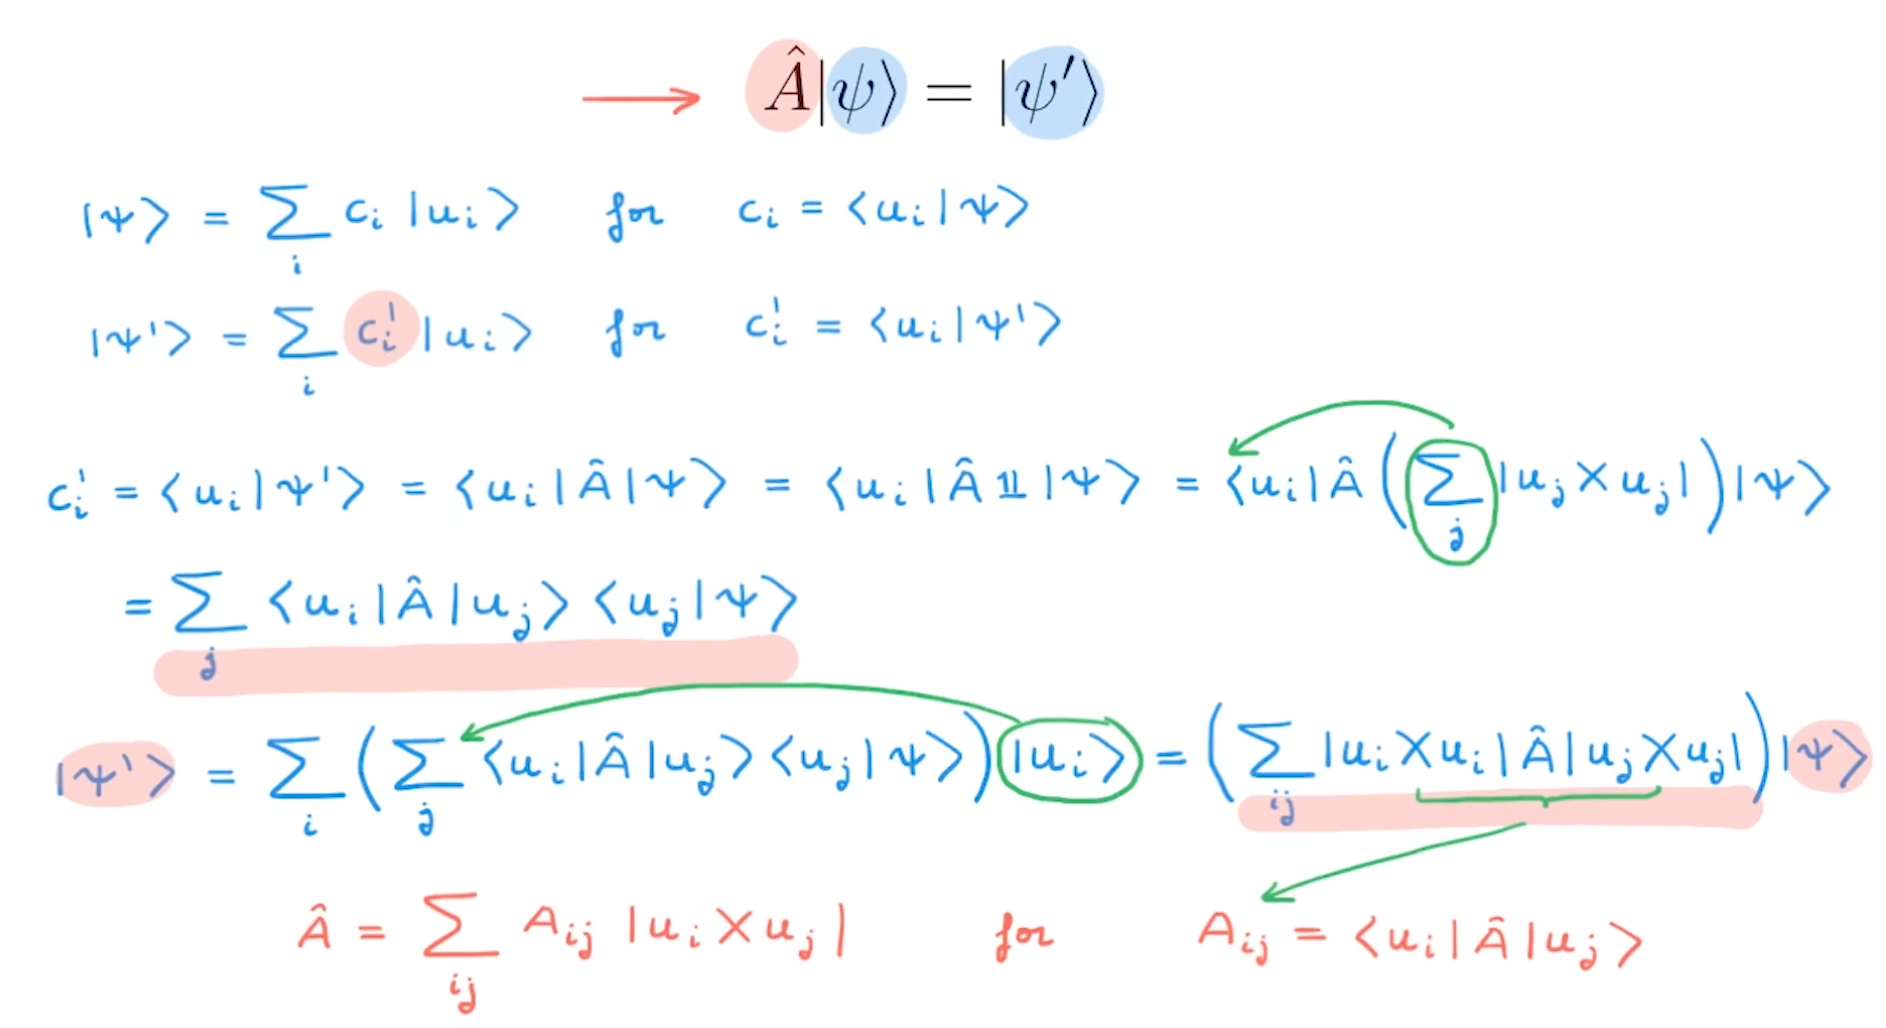 → Â|ψ⟩ = |ψ′⟩
|ψ⟩ = ∑_i c_i |u_i⟩ for c_i = ⟨u_i|ψ⟩
|ψ'⟩ = ∑_i c_i' |u_i⟩ for c_i' = ⟨u_i|ψ'⟩
c_i' = ⟨u_i|ψ'⟩ = ⟨u_i|Â|ψ⟩ = ⟨u_i|Â 𝟙|ψ⟩ = ⟨u_i|Â(∑_j |u_j⟩⟨u_j|)|ψ⟩
= ∑_j ⟨u_i|Â|u_j⟩⟨u_j|ψ⟩
|ψ'⟩ = ∑_i (∑_j ⟨u_i|Â|u_j⟩⟨u_j|ψ⟩)|u_i⟩ = (∑_ij |u_i⟩⟨u_i|Â|u_j⟩⟨u_j|)|ψ⟩
Â = ∑_ij A_ij |u_i⟩⟨u_j| for A_ij = ⟨u_i|Â|u_j⟩